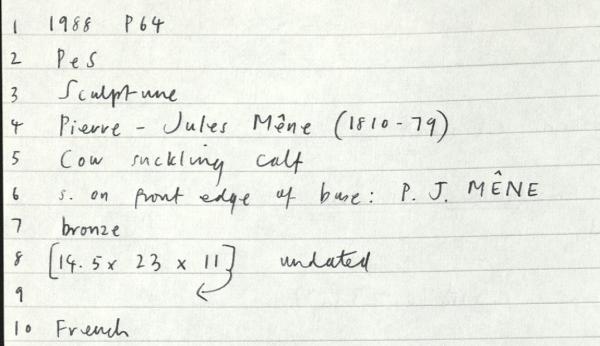 1 1988 P64
2 PeS
3 Sculpture
4 Pierre - Jules Mêne (1810-79)
5 Cow suckling calf
6 s. on front edge of base: P. J. MÊNE
7 bronze
8 [14.5 x 23 x 11] undated
9
10 French